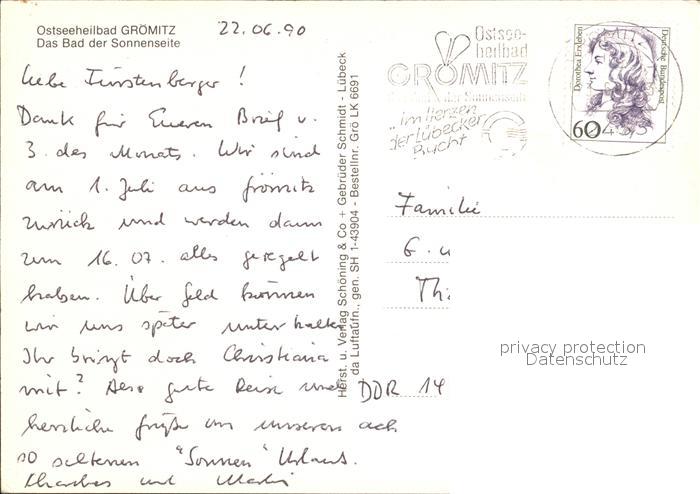 Ostseeheilbad GRÖMITZ
Das Bad der Sonnenseite
22.06.90
Liebe Fürstenberger!
Dank für Eueren Brief v.
3. des Monats. Wir sind
am 1. Juli aus Grömitz
zurück und werden dann
zum 16.07. alles geregelt
haben. Über Geld können
wir uns später unterhalten
Ihr bringt doch Christiana
mit? Also gute Reise und
herzliche Grüße von unserem ach
so seltenen "Sonnen" Urlaub.
und
Herst. u. Verlag Schöning & Co + Gebrüder Schmidt - Lübeck
da Luftaufn., gen. SH 1-43904 - Bestellnr. Grö LK 6691
Ostsee-
heilbad
GRÖMITZ
der Sonnenseite
im Herzen
der Lübecker
Bucht
Dorothea Erxleben
Deutsche Bundespost
60
Familie
G. u
Th
DDR 14
privacy protection
Datenschutz